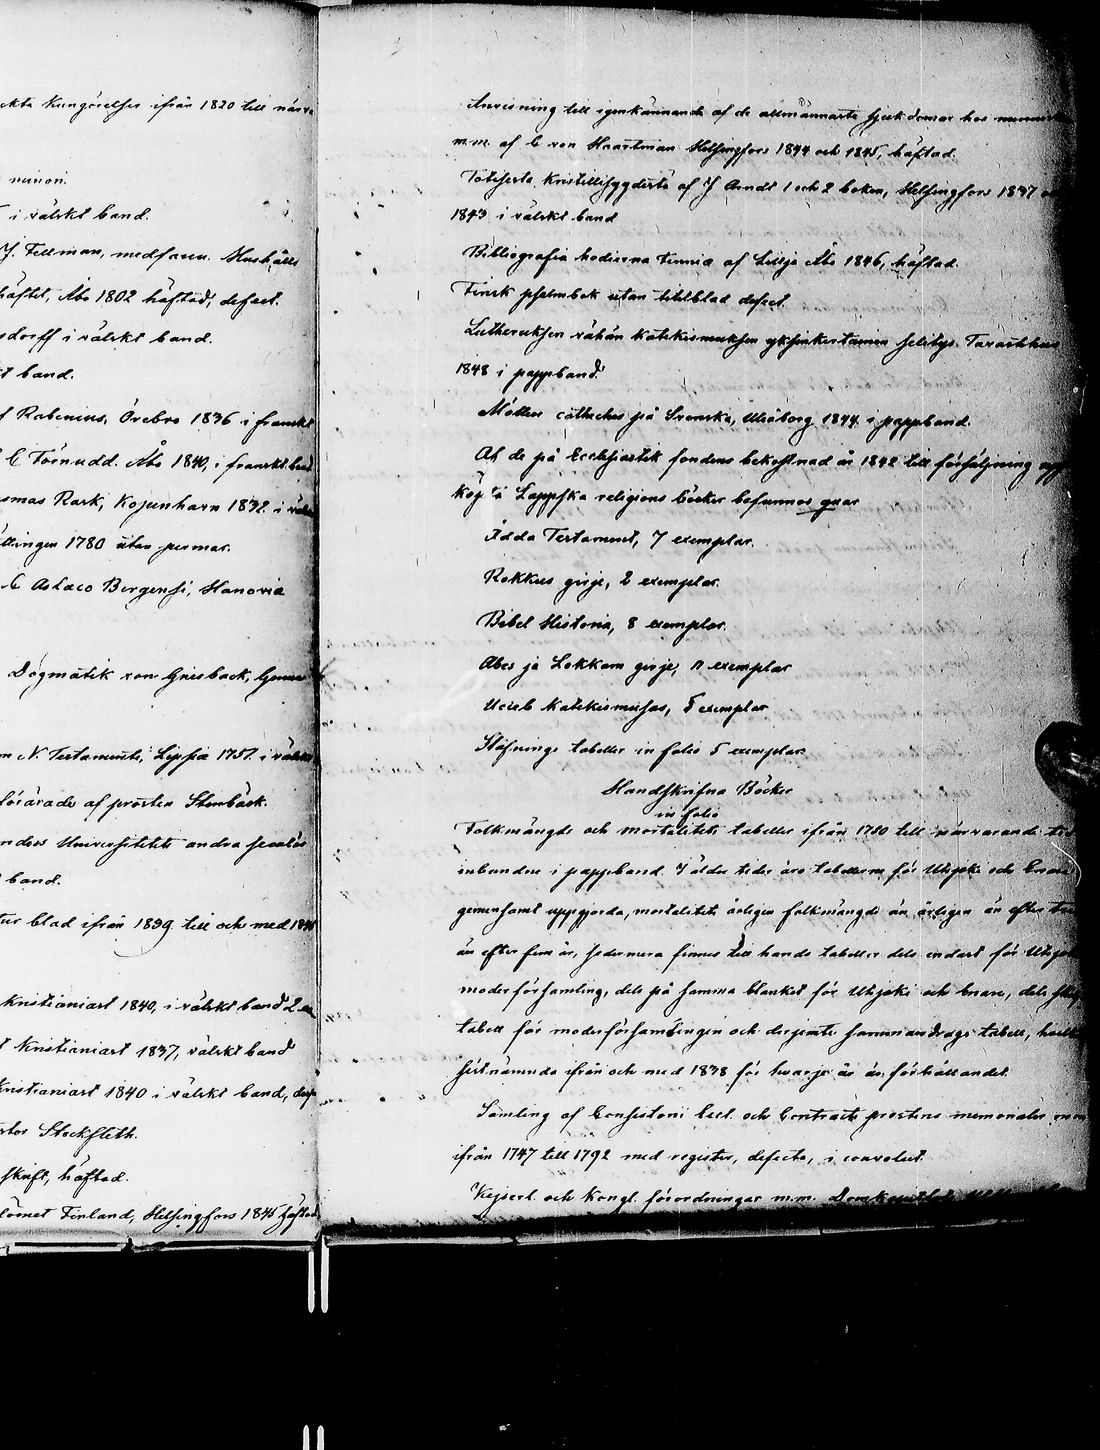 kta Kungörelser ifrån 1820 till närva
minori.
i välskt band.
J. Fellman, medfaren. Hushålls
häftet, Åbo 1802 häftad, defect.
sdorff i välskt band.
t band.
f Rabenius, Örebro 1836 i franskt
C Törnudd. Åbo 1840, i franskt band
smas Rask, Kopenhavn 1832 i välskt
ttingen 1780 utan permar.
Bergensi, Hanovia
Dogmatik von Griesback,
N. Testamenti, Lipsia 1757. i välskt
förärade af prosten Stenbäck.
nders Universitetets andra
band.
tur blad ifrån 1839 till och med 1845
Kristianiast 1840, i välskt band 2 ex
t Kristianiast 1837, välskt band
Kristianiast 1840 i välskt band,
stor Stockfleth.
skrift, häftad.
dömet Finland, Helsingfors 1845 häftad
Anvisning till igenkännande af de allmännaste sjukdomar hos
m.m. af C von Haartman Helsingfors 1844 och 1845, häftad.
Totisesta Kristillisyydestä af J Arndt 1 och 2 boken, Helsingfors 1837 o
1843 i välskt band
Bibliografia hodierna Fennia af Lillja Åbo 1846, häftad.
Finsk psalmbok utan titelblad defect.
Lutheruksen vähän Katekismuksen yksinkertainen selitys. Tavastehus
1848 i pappband.
Möllers catheches på Svenska, Uleåborg 1844 i pappband.
Af de på Ecclesiastik fondens bekostnad år 1842 till försäljning upp
köpta Lappska religions böcker befunnos quar
Ådda Testament, 7 exemplar.
Rokkus girje, 2 exemplar.
Bibel Historia, 8 exemplar.
Abes ja Lokkam girje, 11 exemplar
Ucceb Katekismusas, 5 exemplar
Stafnings tabeller in folio 5 exemplar.
Handskrifna Böcker
in folio
Folkmängds och mortalitets tabeller ifrån 1780 till närvarande tid
inbundne i pappband I äldre tider äro tabellerne för Utsjoki och Enare
gemensamt uppgjorda, mortalitets årligen folkmängds än årligen än efter tre
än efter fem år, sedermera finnes till hands tabeller dels endast för Utsjoki
moderförsamling, dels på samma blankett för Utsjoki och Enare, dels
tabell för moderförsamlingen och dessjemte sammandrags tabell,
sistnämnda ifrån och med 1838 för hvarje år är förhållandet.
Samling af Consistorii Eccl. och Contracts prostens memorialer m.m
ifrån 1747 till 1792 med register, defecta, i convolut.
Kejserl. och Kongl. förordningar m.m.